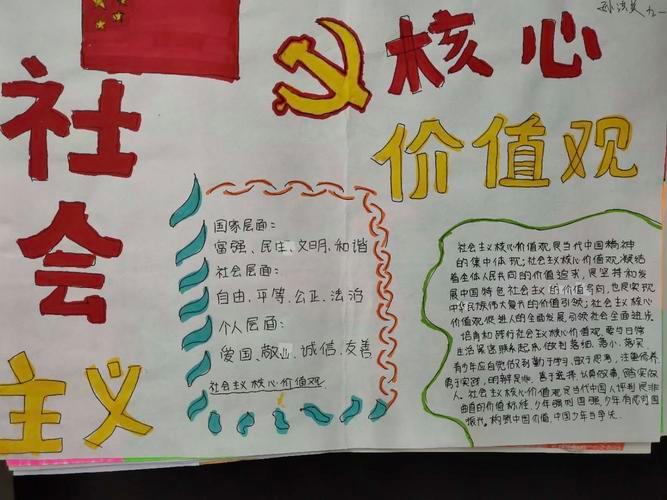 孙洪英 九一
社会
主义
核心
价值观
国家层面：
富强、民主、文明、和谐
社会层面：
自由、平等、公正、法治
个人层面：
爱国、敬业、诚信、友善
社会主义核心价值观
社会主义核心价值观是当代中国精神
的集中体现；社会主义核心价值观凝结
着全体人民共同的价值追求，是坚持和发
展中国特色社会主义的价值导向，也是实现
中华民族伟大复兴的价值引领；社会主义核心
价值观促进人的全面发展，引领社会全面进步
培育和践行社会主义核心价值观，要与日常
生活紧密联系起来，做到落细、落小、落实
青少年应自觉做到勤于学习、敏于思考，注重修养
勇于实践，明辨是非、善于选择，认真做事，踏实做
人。社会主义核心价值观是当代中国人评判是非
曲直的价值标准，少年强则国强，少年有志则国
振兴。构筑中国价值，中国少年当争先。